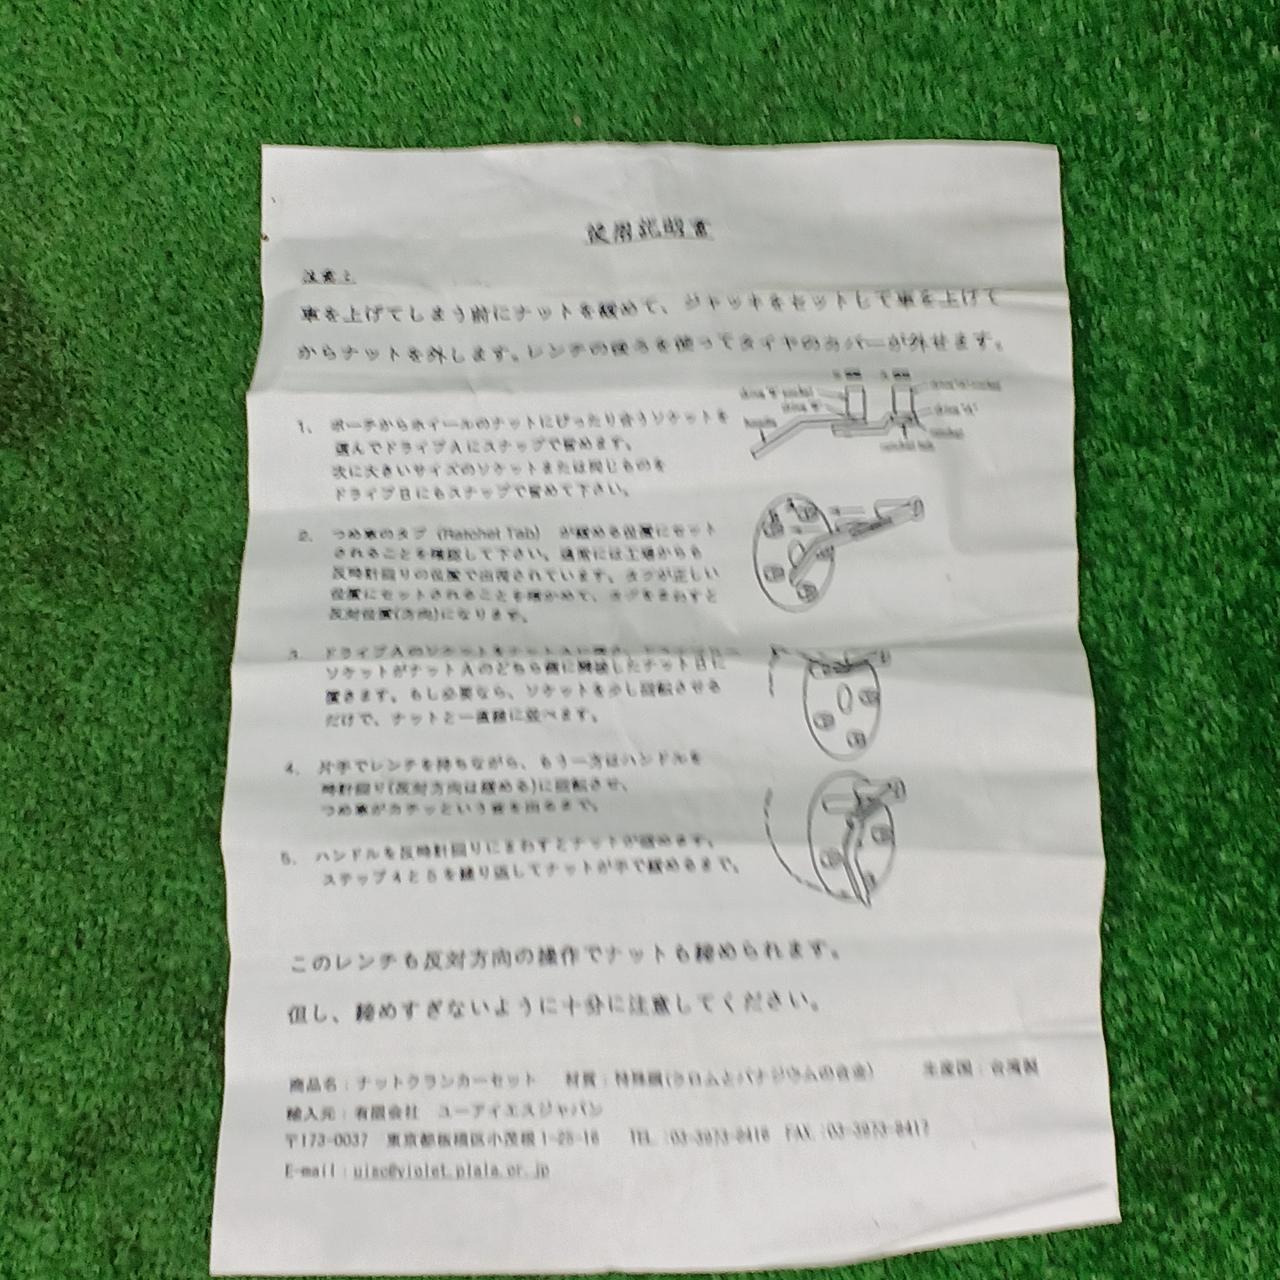 使用説明書
注意：
車を上げてしまう前にナットを緩めて、ジャッキをセットして車を上げて
からナットを外します。レンチの後ろを使ってタイヤのカバーが外せます。
1. ポーチからホイールのナットにぴったり合うソケットを
選んでドライブAにスナップで留めます。
次に大きいサイズのソケットまたは同じものを
ドライブBにもスナップで留めて下さい。
handle
2. つめ車のタブ (Ratchet Tab) が緩める位置にセット
されることを確認して下さい。通常には工場からも
反時計回りの位置で出荷されています。タブが正しい
位置にセットされることを確かめて、タブをまわすと
反対位置(方向)になります。
3. ドライブAのソケットをナットAに置き、
ソケットがナットAのどちら側に隣接したナットBに
置きます。もし必要なら、ソケットを少し回転させる
だけで、ナットと一直線に並べます。
4. 片手でレンチを持ちながら、もう一方はハンドルを
時計回り(反対方向は緩める)に回転させ、
つめ車がカチッという音を出るまで。
5. ハンドルを反時計回りにまわすとナットが緩めます。
ステップ4と5を繰り返してナットが手で緩めるまで。
このレンチも反対方向の操作でナットも締められます。
但し、締めすぎないように十分に注意してください。
商品名：ナットクランカーセット 材質：特殊鋼(クロムとバナジウムの合金) 生産国：台湾製
輸入元：有限会社 ユーアイエスジャパン
〒173-0037 東京都板橋区小茂根1-25-16 TEL：03-3973-8416 FAX：03-3973-8417
E-mail：uisc@violet.plala.or.jp